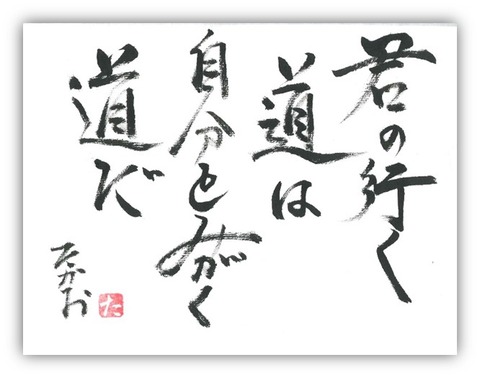 君の行く
道は
自分をみがく
道だ
たかお
た